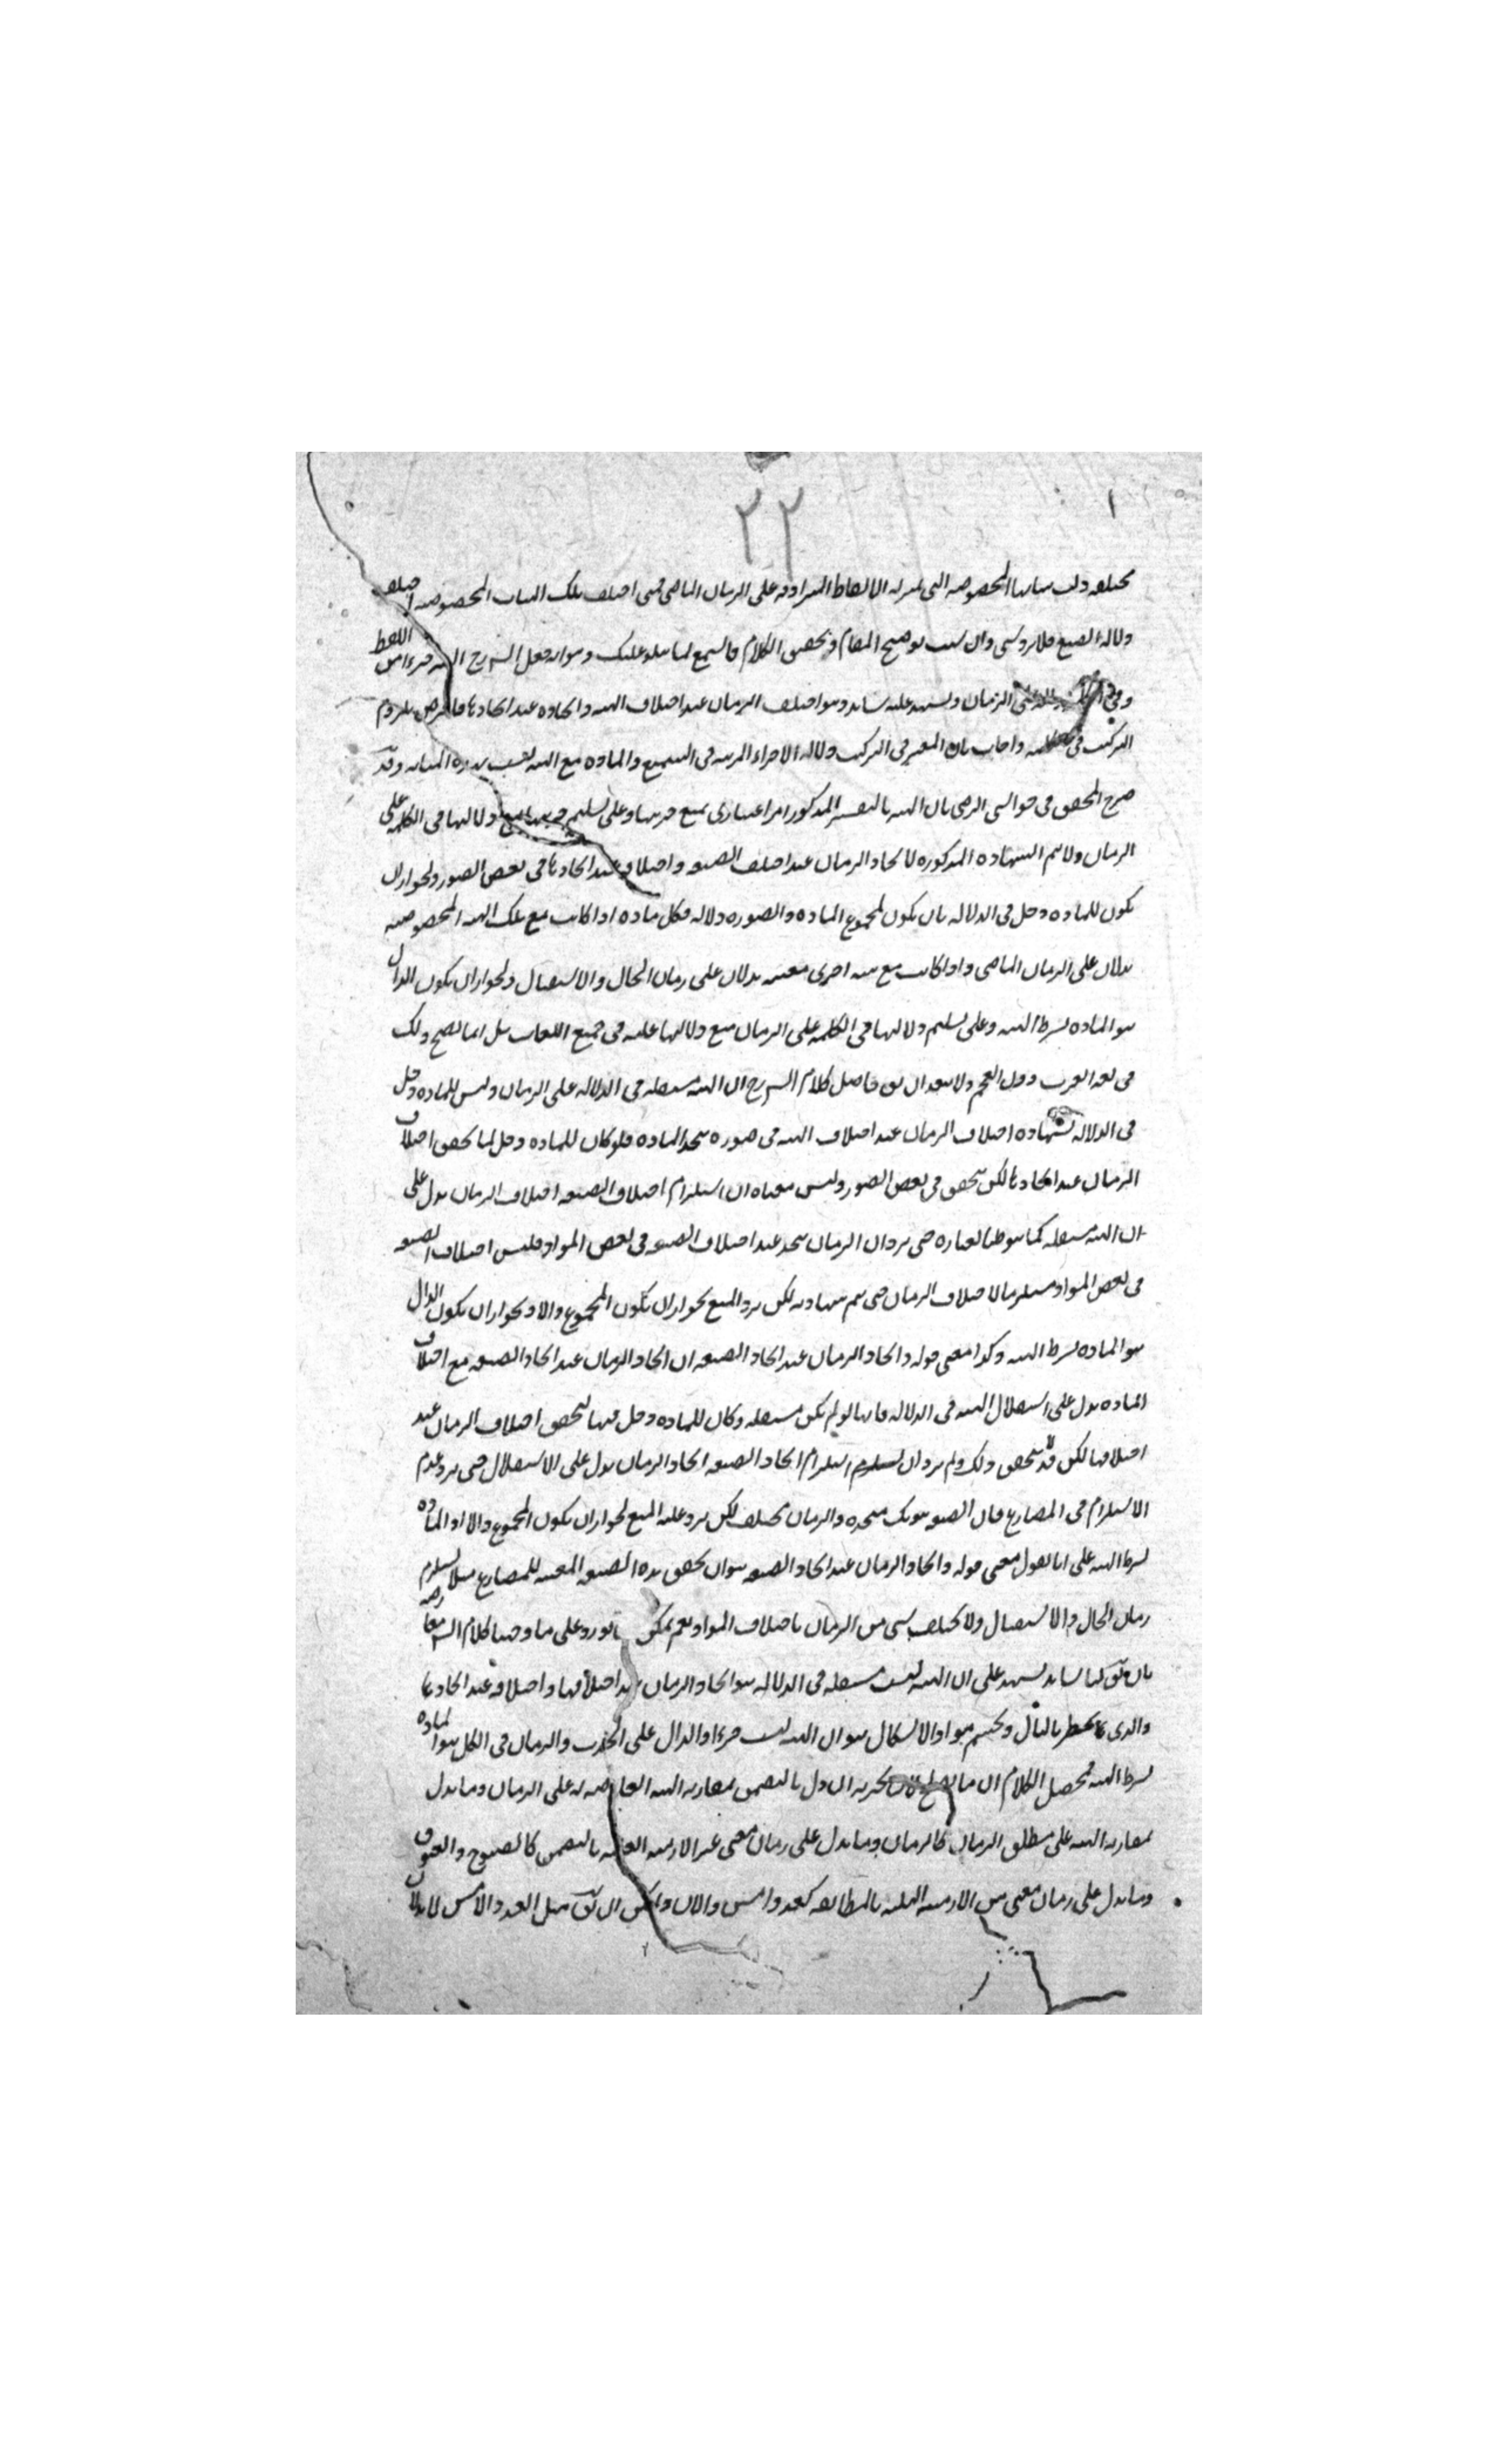 ٢٢
مختلفة دلت هيئاتها المخصوصة التي بمنزلة الالفاظ المترادفة على الزمان الماضي فمتى اختلف تلك الهيئات المخصوصة اختلف
دلالة الصيغ فلا يرد شي وان شئت توضيح المقام وتحقيق الكلام فاستمع لما يتلو عليك وهو انه جعل الشارح الهيئة جزءا من اللفظ
الزمان ويشهد عليه شاهد وهو اختلف الزمان عند اختلاف الهيئة واتحاده عند اتحادها فاعترض بلزوم
التركيب في واجاب بان المعتبر في التركيب دلالة الاجزاء المترتبة في السمع والمادة مع الهيئة ليست بهذه المثابة وقد
صرح المحقق في حواشي الرضي بان الهيئة بالتفسير المذكور امر اعتباري يمنع جزئيتها وعلى تسليم دلالتها في الكلمة على
الزمان ولا تتم الشهادة المذكورة لاتحاد الزمان عند اختلف الصيغة واختلافه عند اتحادها في بعض الصور ولجواز ان
يكون للمادة دخل في الدلالة بان يكون لمجموع المادة والصورة دلالة فكل مادة اذا كانت مع تلك الهيئة المخصوصة
يدلان على الزمان الماضي واذا كانت مع هيئة اخرى معينة يدلان على زمان الحال والاستقبال ولجواز ان يكون الدال
هو المادة بشرط الهيئة وعلى تسليم دلالتها في الكلمة على الزمان منع دلالتها عليه في جميع اللغات بل انما يصح ذلك
في لغة العرب دون العجم ولا يبعد ان يق حاصل كلام الشارح ان الهيئة مستقلة في الدلالة على الزمان وليس للمادة دخل
في الدلالة بشهادة اختلاف الزمان عند اختلاف الهيئة في صورة يتحد المادة فلو كان للمادة دخل لما تحقق اختلاف
الزمان عند اتحادها لكن يتحقق في بعض الصور وليس معناه ان استلزام اختلاف الصيغة اختلاف الزمان يدل على
ان الهيئة مستقلة كما هو ظ العبارة حتى يرد ان الزمان يتحد عند اختلاف الصيغة في بعض المواد فليس اختلاف الصيغة
في بعض المواد مستلزما لاختلاف الزمان حتى يتم شهادته لكن يرد المنع لجواز ان يكون المجموع دالا ولجواز ان يكون الدال
هو المادة بشرط الهيئة وكذا معنى قوله واتحاد الزمان عند اتحاد الصيغة ان اتحاد الزمان عند اتحاد الصيغة مع اختلاف
المادة يدل على استقلال الهيئة في الدلالة فانها لو لم تكن مستقلة وكان للمادة دخل فيها لتحقق اختلاف الزمان عند
اختلافها لكن قد لا يتحقق ذلك ولم يرد ان استلزام اتحاد الصيغة اتحاد الزمان يدل على الاستقلال حتى يرد عدم
الاستلزام في المضارع فان الصيغة هناك متحدة والزمان مختلف لكن يرد عليه المنع لجواز ان يكون المجموع دالا او المادة
بشرط الهيئة على انا نقول معنى قوله واتحاد الزمان عند اتحاد الصيغة هو ان تحقق هذه الصيغة المعينة للمضارع مثلا يستلزم
زمان الحال والاستقبال ولا يختلف شي من الزمان باختلاف المواد نعم يمكن على ما وجهنا كلام الشارح معارضة
بان يق لنا شاهد يشهد على ان الهيئة ليست مستقلة في الدلالة هو اتحاد الزمان عند اختلافها واختلافه عند اتحادها
والذي يخطر بالبال ويحسم مواد الاشكال هو ان الهيئة ليست جزءا والدال على الحدث والزمان في الكل هو المادة
بشرط الهيئة فمحصل الكلام ان ما ان دل بالتضمن بمقارنة الهيئة العارضة له على الزمان وما يدل
بمقارنة الهيئة على مطلق الزمان كالزمان وما يدل على زمان معين غير الازمنة الثلثة بالتضمن كالصبوح والغبوق
وما يدل على زمان معين من الازمنة الثلثة بالمطابقة كغد وامس والان ويمكن ان يق مثل الغد والامس لا يدلان